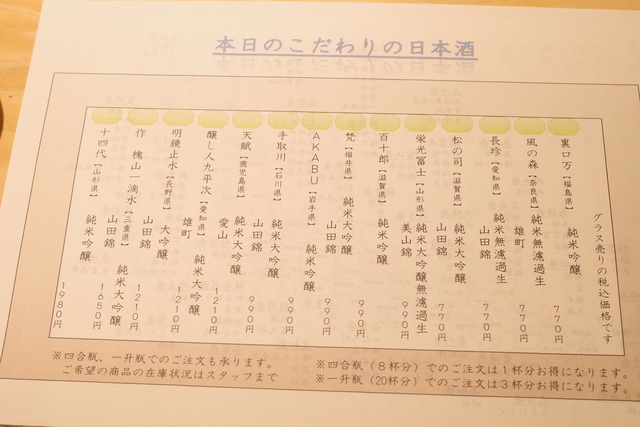 本日のこだわりの日本酒
グラス売りの税込価格です
裏ロ万【福島県】 純米吟醸
770円
風の森【奈良県】 純米無濾過生
雄町 770円
長珍【愛知県】 純米無濾過生
山田錦 770円
松の司【滋賀県】 純米大吟醸
山田錦 770円
栄光冨士【山形県】純米大吟醸無濾過生
美山錦 990円
百十郎【滋賀県】 純米吟醸
990円
梵【福井県】 純米大吟醸
山田錦 990円
AKABU【岩手県】 純米吟醸
990円
手取川【石川県】 純米大吟醸
山田錦 990円
天賦【鹿児島県】 純米大吟醸
愛山 1210円
醸し人九平次【愛知県】 純米大吟醸
雄町 1210円
明鏡止水【長野県】 大吟醸
山田錦 1210円
作 槐山一滴水【三重県】 純米大吟醸
山田錦 1650円
十四代【山形県】 純米吟醸
1980円
※四合瓶、一升瓶でのご注文も承ります。
ご希望の商品の在庫状況はスタッフまで
※四合瓶（8杯分）でのご注文は1杯分お得になります。
※一升瓶（20杯分）でのご注文は3杯分お得になります。